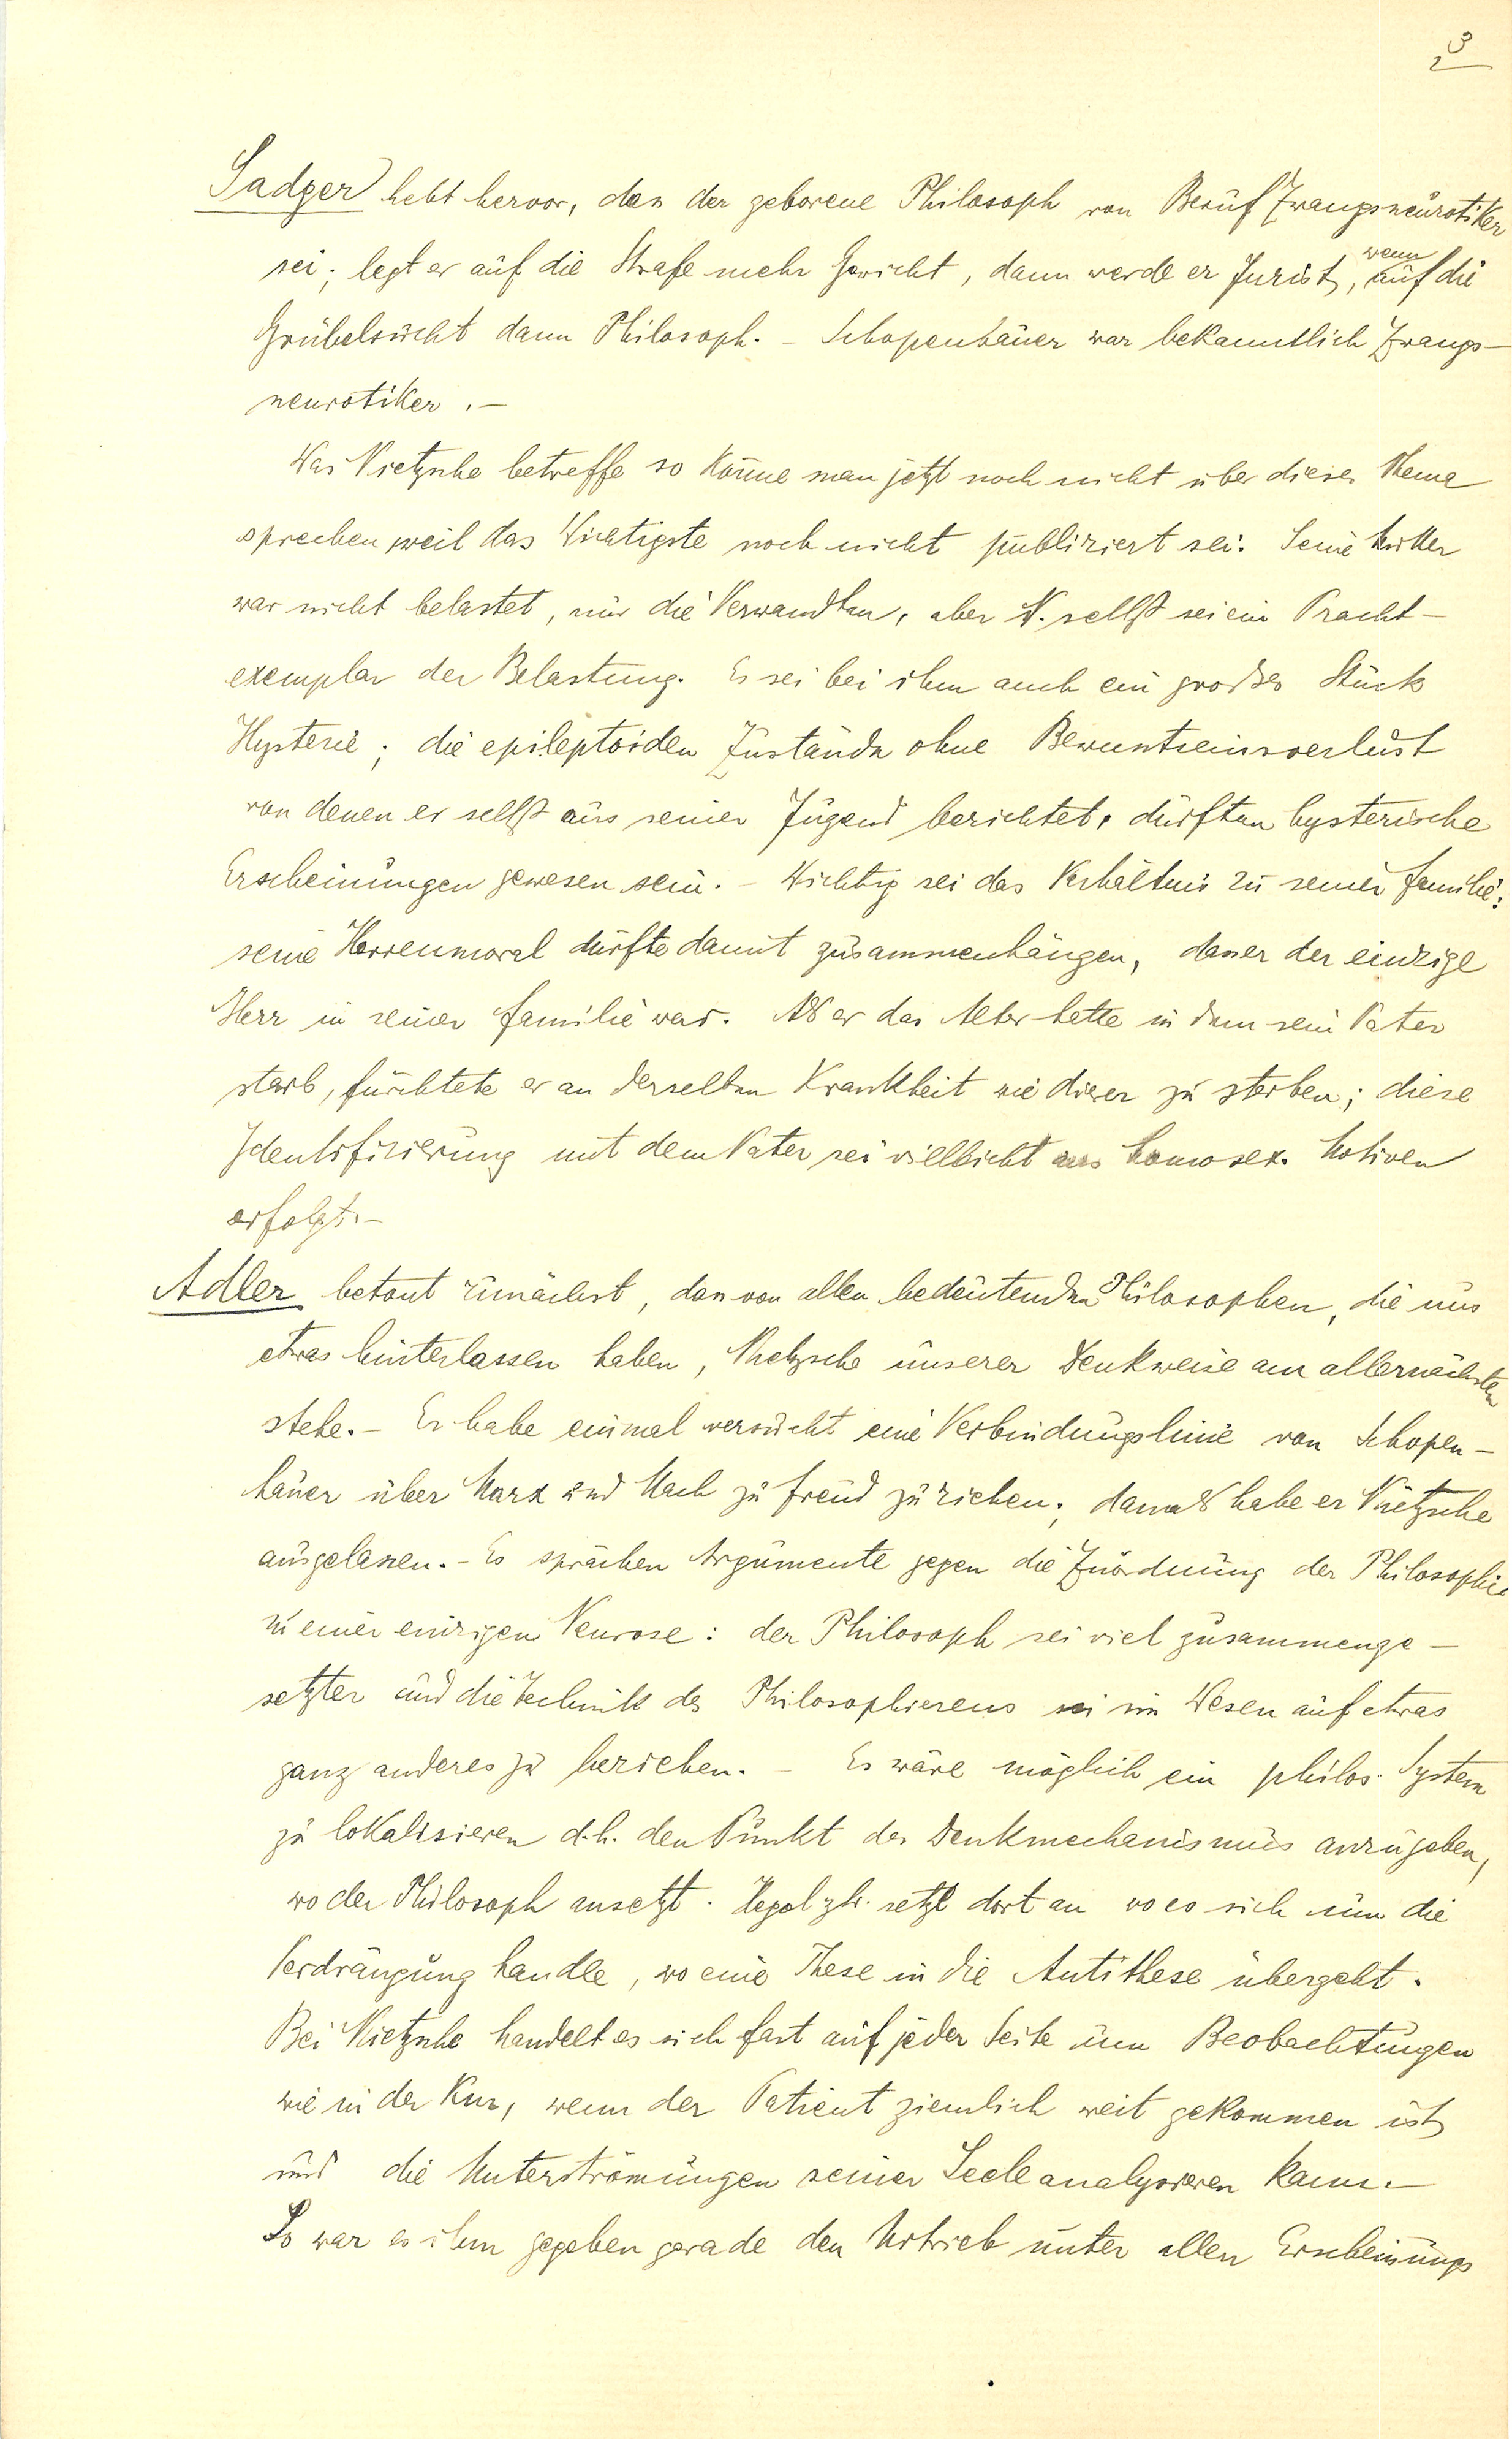 3
Sadger hebt hervor, dass der geborene Philosoph von Beruf Zwangsneurotiker
sei; legt er auf die Strafe mehr Gewicht, dann werde er Jurist, wenn auf die
Grübelsucht dann Philosoph. – Schopenhauer war bekanntlich Zwangs-
neurotiker. –
Was Nietzsche betreffe so könne man jetzt noch nicht über dieses Thema
sprechen, weil das Wichtigste noch nicht publiziert sei. Seine Mutter
war nicht belastet, nur die Verwandten, aber N. selbst sei ein Pracht-
exemplar der Belastung. Es sei bei ihm auch ein großes Stück
Hysterie; die epileptoiden Zustände ohne Bewusstseinsverlust
von denen er selbst aus seiner Jugend berichtet, dürften hysterische
Erscheinungen gewesen sein. – Wichtig sei das Verhältnis zu seiner Familie:
seine Herrenmoral dürfte damit zusammenhängen, dass er der einzige
Herr in seiner Familie war. Als er das Alter hatte in dem sein Vater
starb, fürchtete er an derselben Krankheit wie dieser zu sterben; diese
Identifizierung mit dem Vater sei vielleicht aus homosex. Motiven
erfolgt. –
Adler betont zunächst, dass von allen bedeutenden Philosophen, die uns
etwas hinterlassen haben, Nietzsche unserer Denkweise am allernächsten
stehe. – Er habe einmal versucht eine Verbindungslinie von Schopen-
hauer über Marx und Mach zu Freud zu ziehen; damals habe er Nietzsche
ausgelassen. – Es sprächen Argumente gegen die Zuordnung der Philosophie
zu einer einzigen Neurose: der Philosoph sei viel zusammenge-
setzter und die Technik des Philosophierens sei im Wesen auf etwas
ganz anderes zu beziehen. – Es wäre möglich ein philos. System
zu lokalisieren d.h. den Punkt des Denkmechanismus anzugeben,
wo der Philosoph ansetzt. Hegel zb. setzt dort an wo es sich um die
Verdrängung handle, wo eine These in die Antithese übergeht.
Bei Nietzsche handelt es sich fast auf jeder Seite um Beobachtungen
wie in der Kur, wenn der Patient ziemlich weit gekommen ist
und die Unterströmungen seiner Seele analysieren kann. –
So war es ihm gegeben gerade den Urtrieb unter allen Erscheinungs